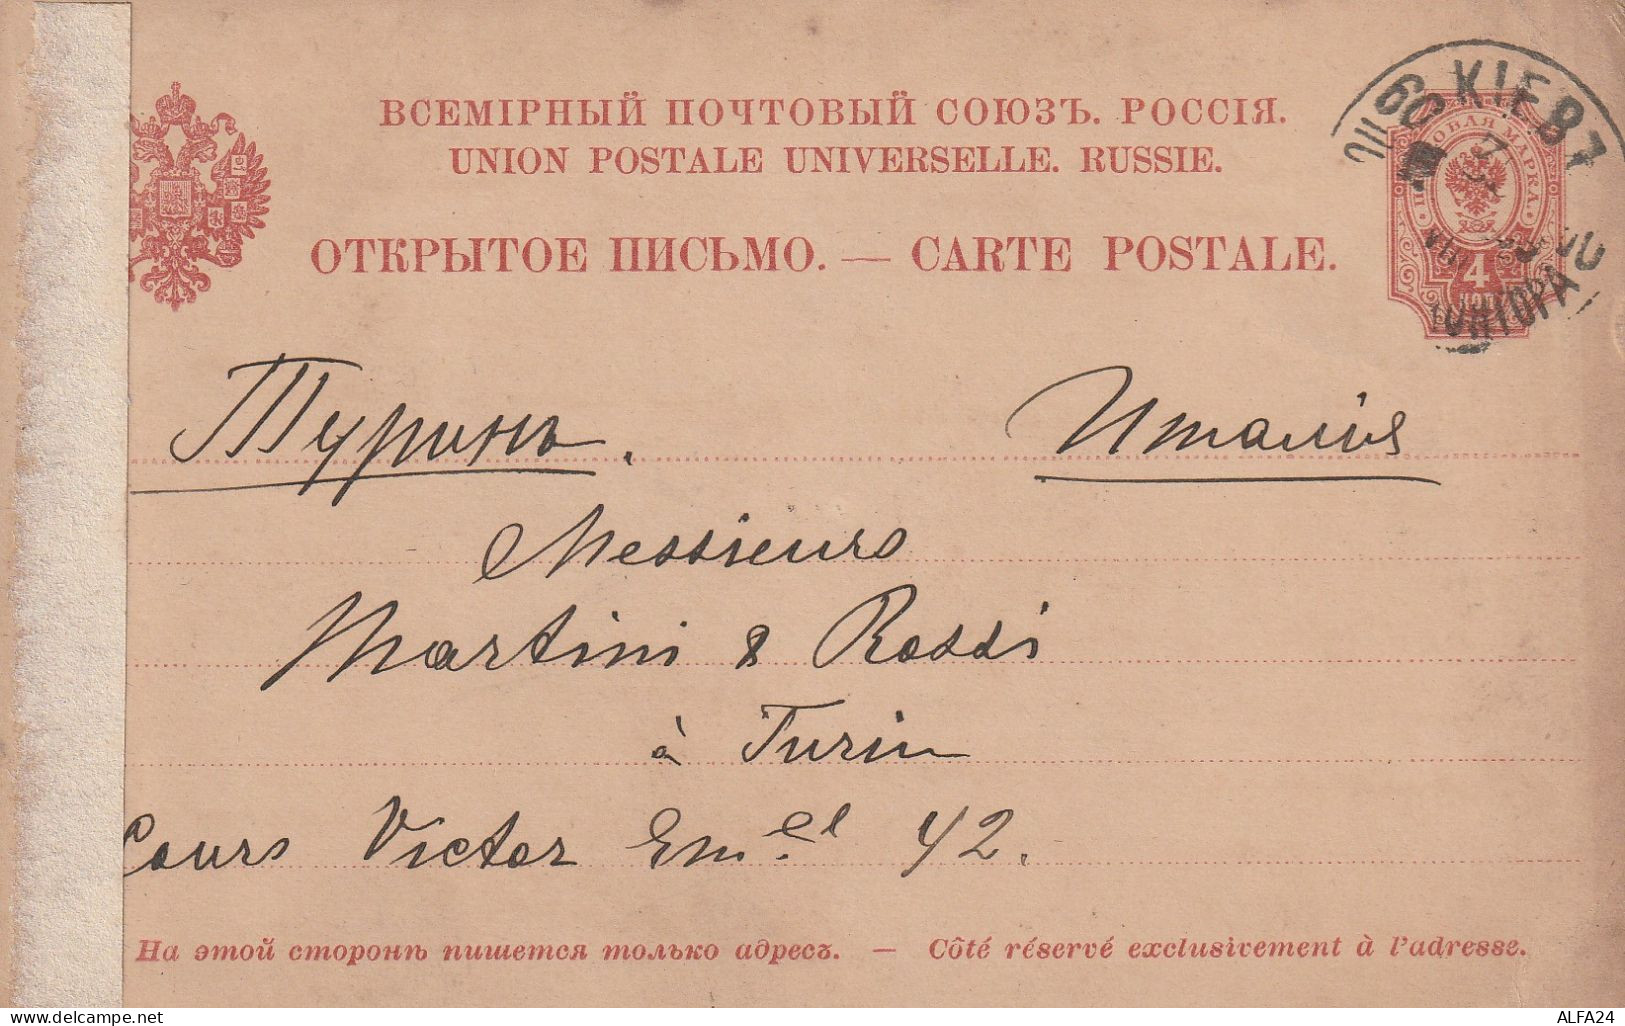 ВСЕМІРНЫЙ ПОЧТОВЫЙ СОЮЗЪ. РОССІЯ.
UNION POSTALE UNIVERSELLE. RUSSIE.
ОТКРЫТОЕ ПИСЬМО. — CARTE POSTALE.
КІЕВЪ
МАРКА.
4
КОП
КОНТОРА
Туринъ. Италія
Messieurs
Martini & Rossi
à Turin
Cours Victor Em.el 42.
На этой сторонѣ пишется только адресъ. — Côté réservé exclusivement à l'adresse.
ALFA24